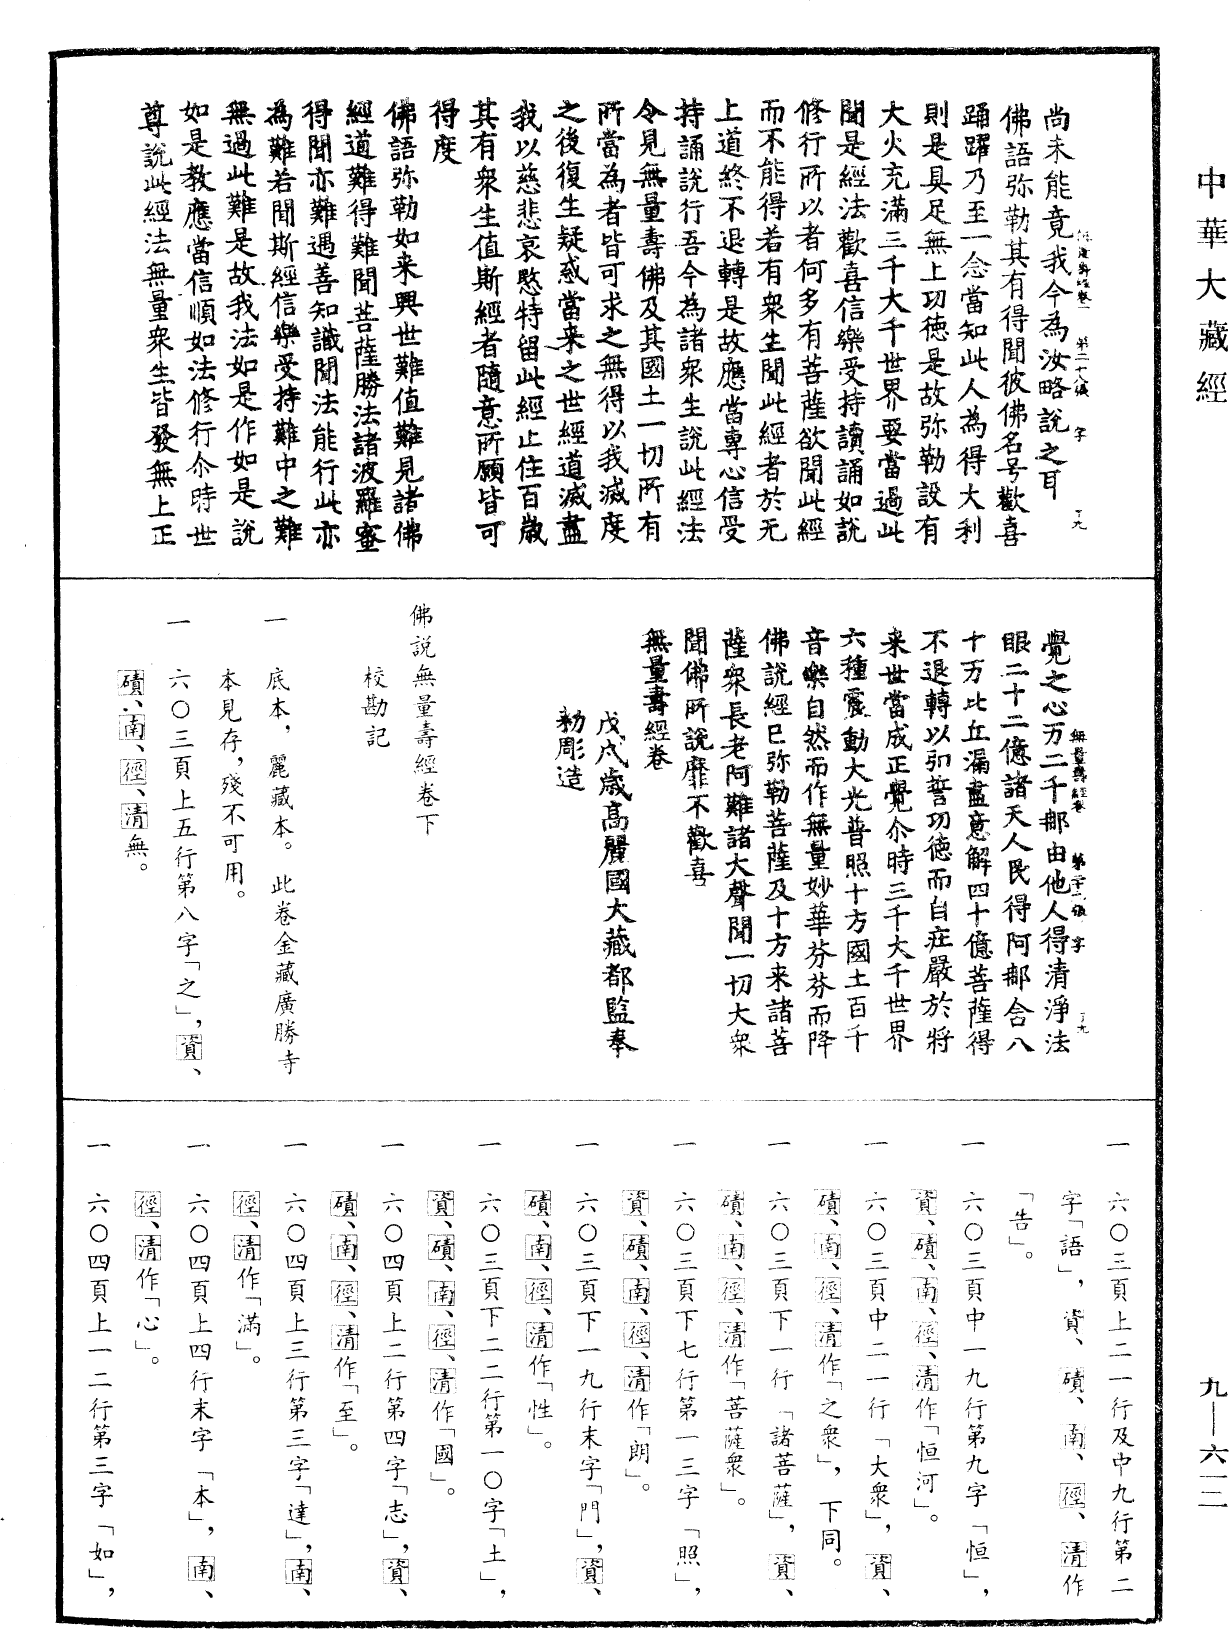 中華大藏經
尚未能竟我今為汝略說之耳
佛語弥勒其有得聞彼佛名号歡喜
踊躍乃至一念當知此人為得大利
則是具足無上功德是故弥勒設有
大火充滿三千大千世界要當過此
聞是經法歡喜信樂受持讀誦如說
修行所以者何多有菩薩欲聞此經
而不能得若有衆生聞此經者於无
上道終不退轉是故應當專心信受
持誦說行吾今為諸衆生說此經法
令見無量壽佛及其國土一切所有
所當為者皆可求之無得以我滅度
之後復生疑惑當来之世經道滅盡
我以慈悲哀愍特留此經止住百歲
其有衆生值斯經者隨意所願皆可
得度
佛語弥勒如来興世難值難見諸佛
經道難得難聞菩薩勝法諸波羅蜜
得聞亦難遇善知識聞法能行此亦
為難若聞斯經信樂受持難中之難
無過此難是故我法如是作如是說
如是教應當信順如法修行尒時世
尊說此經法無量衆生皆發無上正
無量壽經卷 第二十八張 字
覺之心万二千那由他人得清淨法
眼二十二億諸天人民得阿那含八
十万比丘漏盡意解四十億菩薩得
不退轉以弘誓功德而自莊嚴於將
来世當成正覺尒時三千大千世界
六種震動大光普照十方國土百千
音樂自然而作無量妙華芬芬而降
佛說經已弥勒菩薩及十方来諸菩
薩衆長老阿難諸大聲聞一切大衆
聞佛所說靡不歡喜
無量壽經卷
戊戌歲高麗國大藏都監奉
勅彫造
佛説無量壽經卷下
校勘記
一 底本，麗藏本。此卷金藏廣勝寺
本見存，殘不可用。
一 六〇三頁上五行第八字「之」，資、
磧、南、徑、清無。
一 六〇三頁上二一行及中九行第二
字「語」，資、磧、南、徑、清作
「告」。
一 六〇三頁中一九行第九字「恒」，
資、磧、南、徑、清作「恒河」。
一 六〇三頁中二一行「大衆」，資、
磧、南、徑、清作「之衆」，下同。
一 六〇三頁下一行「諸菩薩」，資、
磧、南、徑、清作「菩薩衆」。
一 六〇三頁下七行第一三字「照」，
資、磧、南、徑、清作「朗」。
一 六〇三頁下一九行末字「門」，資、
磧、南、徑、清作「性」。
一 六〇三頁下二二行第一〇字「土」，
資、磧、南、徑、清作「國」。
一 六〇四頁上二行第四字「志」，資、
磧、南、徑、清作「至」。
一 六〇四頁上三行第三字「達」，南、
徑、清作「滿」。
一 六〇四頁上四行末字「本」，南、
徑、清作「心」。
一 六〇四頁上一二行第三字「如」，
九—六一二